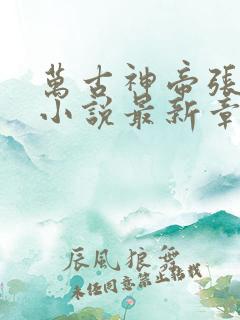 萬古神帝張
小說最新章
辰風狼舞
未任同意禁止轉載